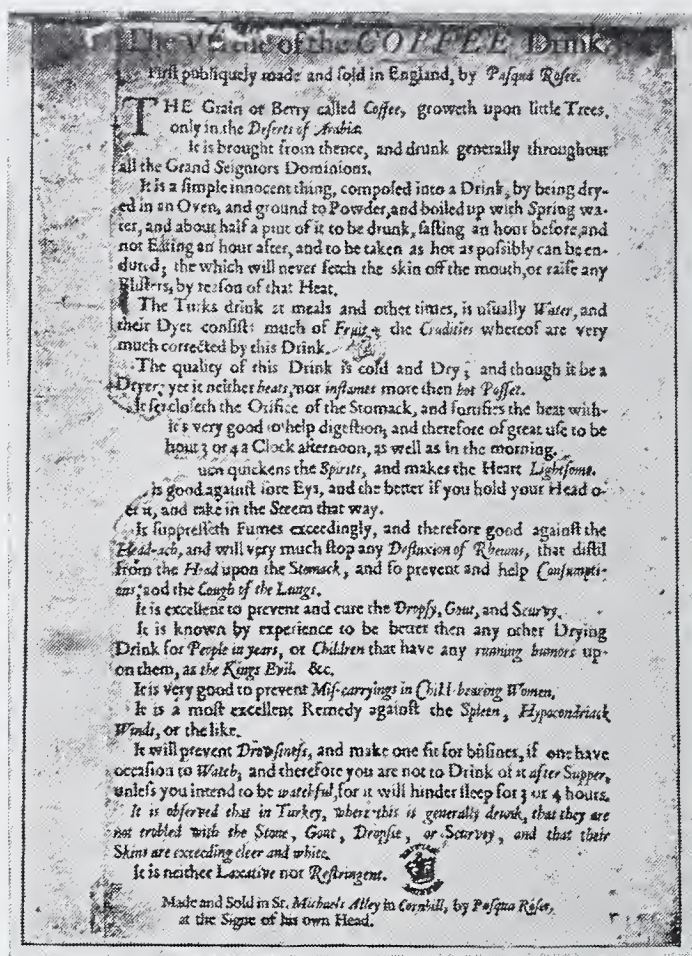 The Vertue of the COFFEE Drink.
First publiquely made and sold in England, by Pasqua Rosee.
THE Grain or Berry called Coffee, groweth upon little Trees,
only in the Deserts of Arabia.
It is brought from thence, and drunk generally throughout
all the Grand Seigniors Dominions.
It is a simple innocent thing, composed into a Drink, by being dry-
ed in an Oven, and ground to Powder, and boiled up with Spring wa-
ter, and about half a pint of it to be drunk, fasting an hour before, and
not Eating an hour after, and to be taken as hot as possibly can be en-
dured; the which will never fetch the skin off the mouth, or raise any
Blisters, by reason of that Heat.
The Turks drink at meals and other times, is usually Water, and
their Dyet consists much of Fruit, the Crudities whereof are very
much corrected by this Drink.
The quality of this Drink is cold and Dry; and though it be a
Dryer, yet it neither heats, nor inflames more then hot Posset.
It forcloseth the Orifice of the Stomack, and fortifies the heat with-
it's very good to help digestion, and therefore of great use to be
bout 3 or 4 a Clock afternoon, as well as in the morning.
uch quickens the Spirits, and makes the Heart Lightsome.
is good against sore Eys, and the better if you hold your Head o-
er it, and take in the Steem that way.
It suppresseth Fumes exceedingly, and therefore good against the
Head-ach, and will very much stop any Defluxion of Rheums, that distil
from the Head upon the Stomack, and so prevent and help Consumpti-
ons; and the Cough of the Lungs.
It is excellent to prevent and cure the Dropsy, Gout, and Scurvy.
It is known by experience to be better then any other Drying
Drink for People in years, or Children that have any running humors up-
on them, as the Kings Evil. &c.
It is very good to prevent Mis-carryings in Child-bearing Women.
It is a most excellent Remedy against the Spleen, Hypocondriack
Winds, or the like.
It will prevent Drowsiness, and make one fit for busines, if one have
occasion to Watch, and therefore you are not to Drink of it after Supper,
unless you intend to be watchful, for it will hinder sleep for 3 or 4 hours.
It is observed that in Turkey, where this is generally drunk, that they are
not trobled with the Stone, Gout, Dropsie, or Scurvey, and that their
Skins are exceeding cleer and white.
It is neither Laxative nor Restringent.
Made and Sold in St. Michaels Alley in Cornhill, by Pasqua Rosee,
at the Signe of his own Head.